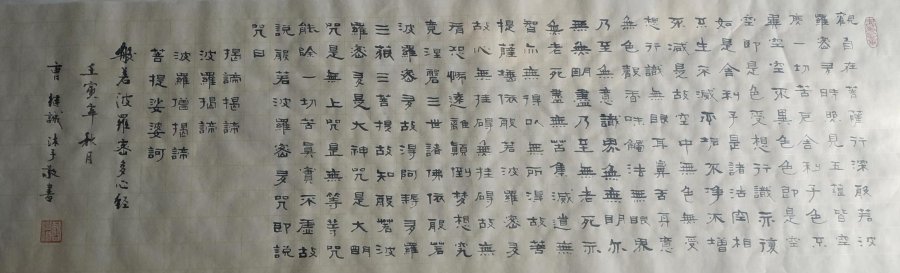 觀自在菩薩行深般若波
羅蜜多時照見五蘊皆空
度一切苦厄舍利子色不
異空空不異色色即是空
空即是色受想行識亦復
如是舍利子是諸法空相
不生不滅不垢不淨不增
不減是故空中無色無受
想行識無眼耳鼻舌身意
無色聲香味觸法無眼界
乃至無意識界無無明亦
無無明盡乃至無老死亦
無老死盡無苦集滅道無
智亦無得以無所得故菩
提薩埵依般若波羅蜜多
故心無挂礙無挂礙故無
有恐怖遠離顛倒夢想究
竟涅磐三世諸佛依般若
波羅蜜多故得阿耨多羅
三藐三菩提故知般若波
羅蜜多是大神咒是大明
咒是無上咒是無等等咒
能除一切苦真實不虛故
說般若波羅蜜多咒即說
咒曰
揭諦揭諦
波羅揭諦
波羅僧揭諦
菩提娑婆訶
般若波羅蜜多心經
壬寅年秋月
曹 誠沐手敬書